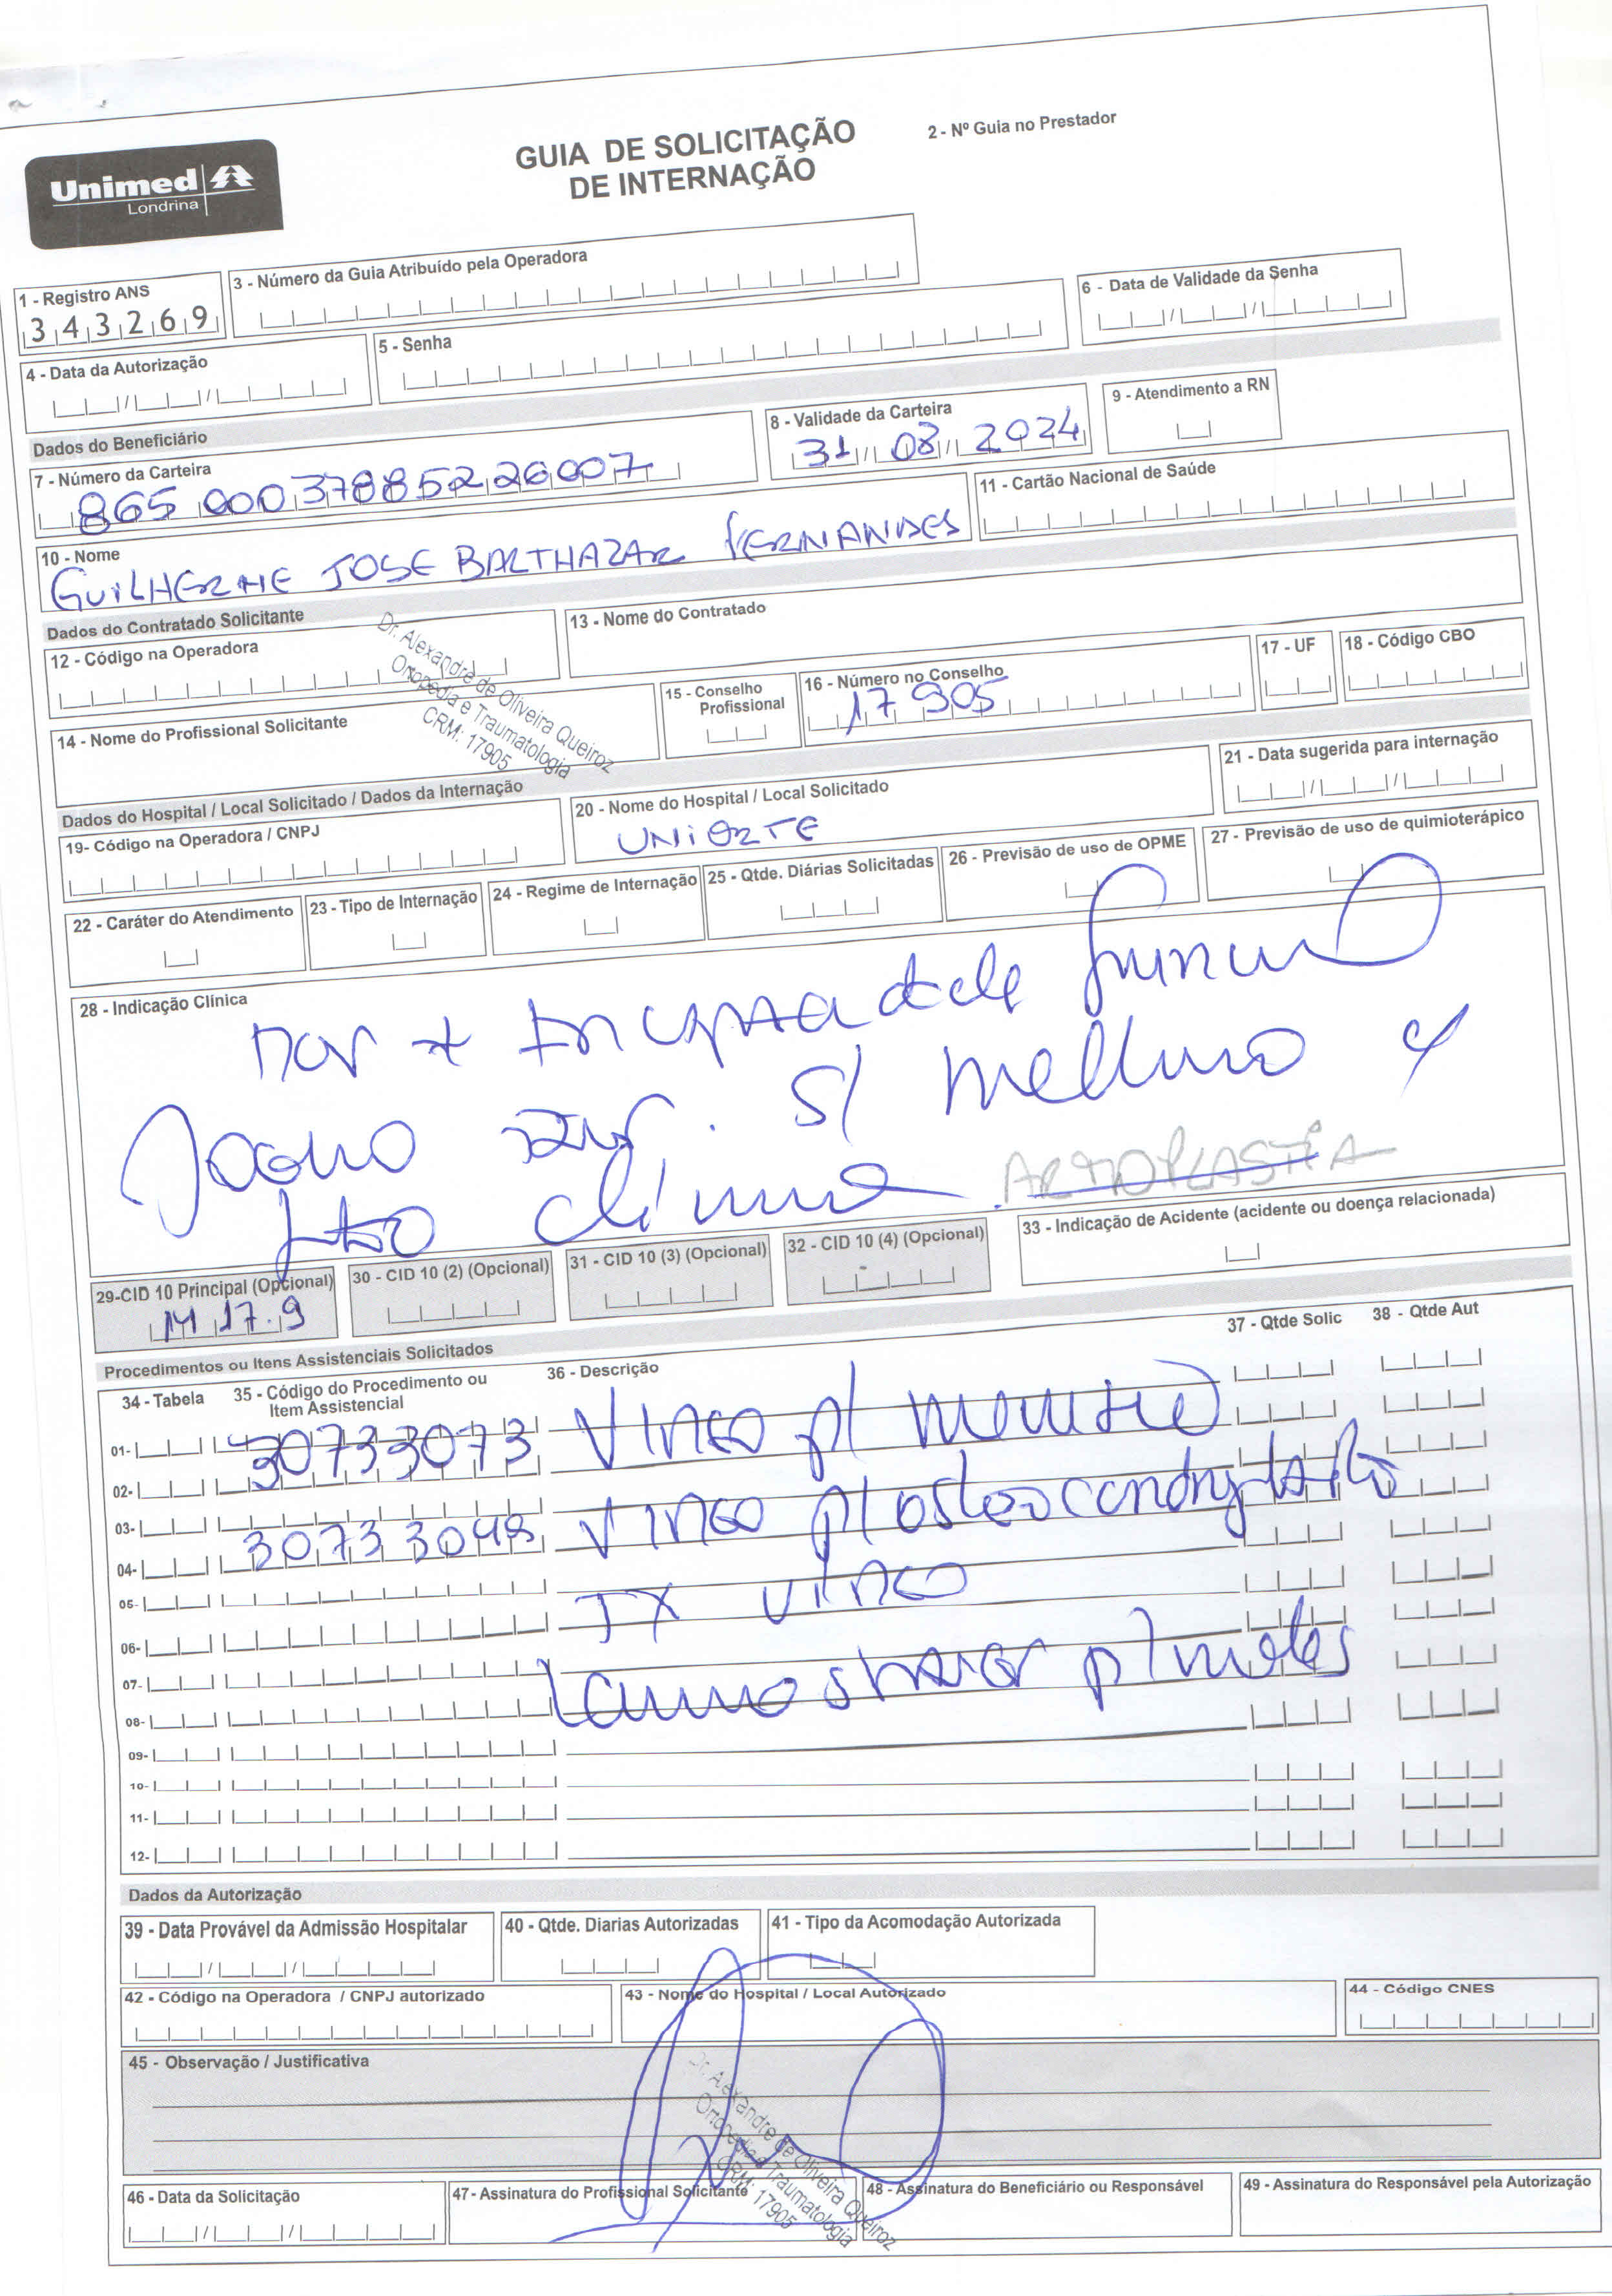 Unimed
Londrina
GUIA DE SOLICITAÇÃO
DE INTERNAÇÃO
2 - Nº Guia no Prestador
1 - Registro ANS
343269
3 - Número da Guia Atribuído pela Operadora
4 - Data da Autorização
5 - Senha
6 - Data de Validade da Senha
Dados do Beneficiário
7 - Número da Carteira
865 000378852226007
8 - Validade da Carteira
31/08/2024
9 - Atendimento a RN
10 - Nome
GUILHERME JOSE BALTHAZAR FERNANDES
11 - Cartão Nacional de Saúde
Dados do Contratado Solicitante
12 - Código na Operadora
13 - Nome do Contratado
14 - Nome do Profissional Solicitante
Dr. Alexandre de Oliveira Queiroz
Ortopedia e Traumatologia
CRM: 17905
15 - Conselho Profissional
16 - Número no Conselho
17905
17 - UF
18 - Código CBO
Dados do Hospital / Local Solicitado / Dados da Internação
19- Código na Operadora / CNPJ
20 - Nome do Hospital / Local Solicitado
UNIORTE
21 - Data sugerida para internação
22 - Caráter do Atendimento
23 - Tipo de Internação
24 - Regime de Internação
25 - Qtde. Diárias Solicitadas
26 - Previsão de uso de OPME
27 - Previsão de uso de quimioterápico
28 - Indicação Clínica
Dor +
Joelho s/ melhora c/
tto clínico ARTROPLASTIA
29-CID 10 Principal (Opcional)
M 17.9
30 - CID 10 (2) (Opcional)
31 - CID 10 (3) (Opcional)
32 - CID 10 (4) (Opcional)
33 - Indicação de Acidente (acidente ou doença relacionada)
Procedimentos ou Itens Assistenciais Solicitados
34 - Tabela
35 - Código do Procedimento ou
Item Assistencial
36 - Descrição
37 - Qtde Solic
38 - Qtde Aut
01-
30733073 Vídeo p/
02-
03-
30733049 Vídeo p/
04-
05-
TX vídeo
06-
07-
08-
09-
10-
11-
12-
Dados da Autorização
39 - Data Provável da Admissão Hospitalar
40 - Qtde. Diarias Autorizadas
41 - Tipo da Acomodação Autorizada
42 - Código na Operadora / CNPJ autorizado
43 - Nome do Hospital / Local Autorizado
44 - Código CNES
45 - Observação / Justificativa
Dr. Alexandre de Oliveira Queiroz
Ortopedia e Traumatologia
CRM: 17905
46 - Data da Solicitação
47- Assinatura do Profissional Solicitante
48 - Assinatura do Beneficiário ou Responsável
49 - Assinatura do Responsável pela Autorização